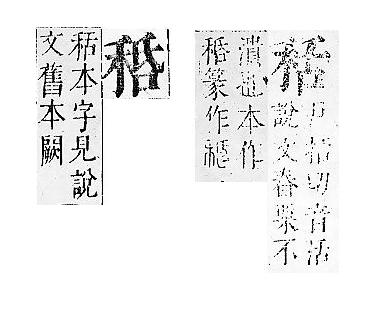 秳
戶括切音活
說文舂粟不
潰也本作
篆作
秳本字見說
文舊本闕